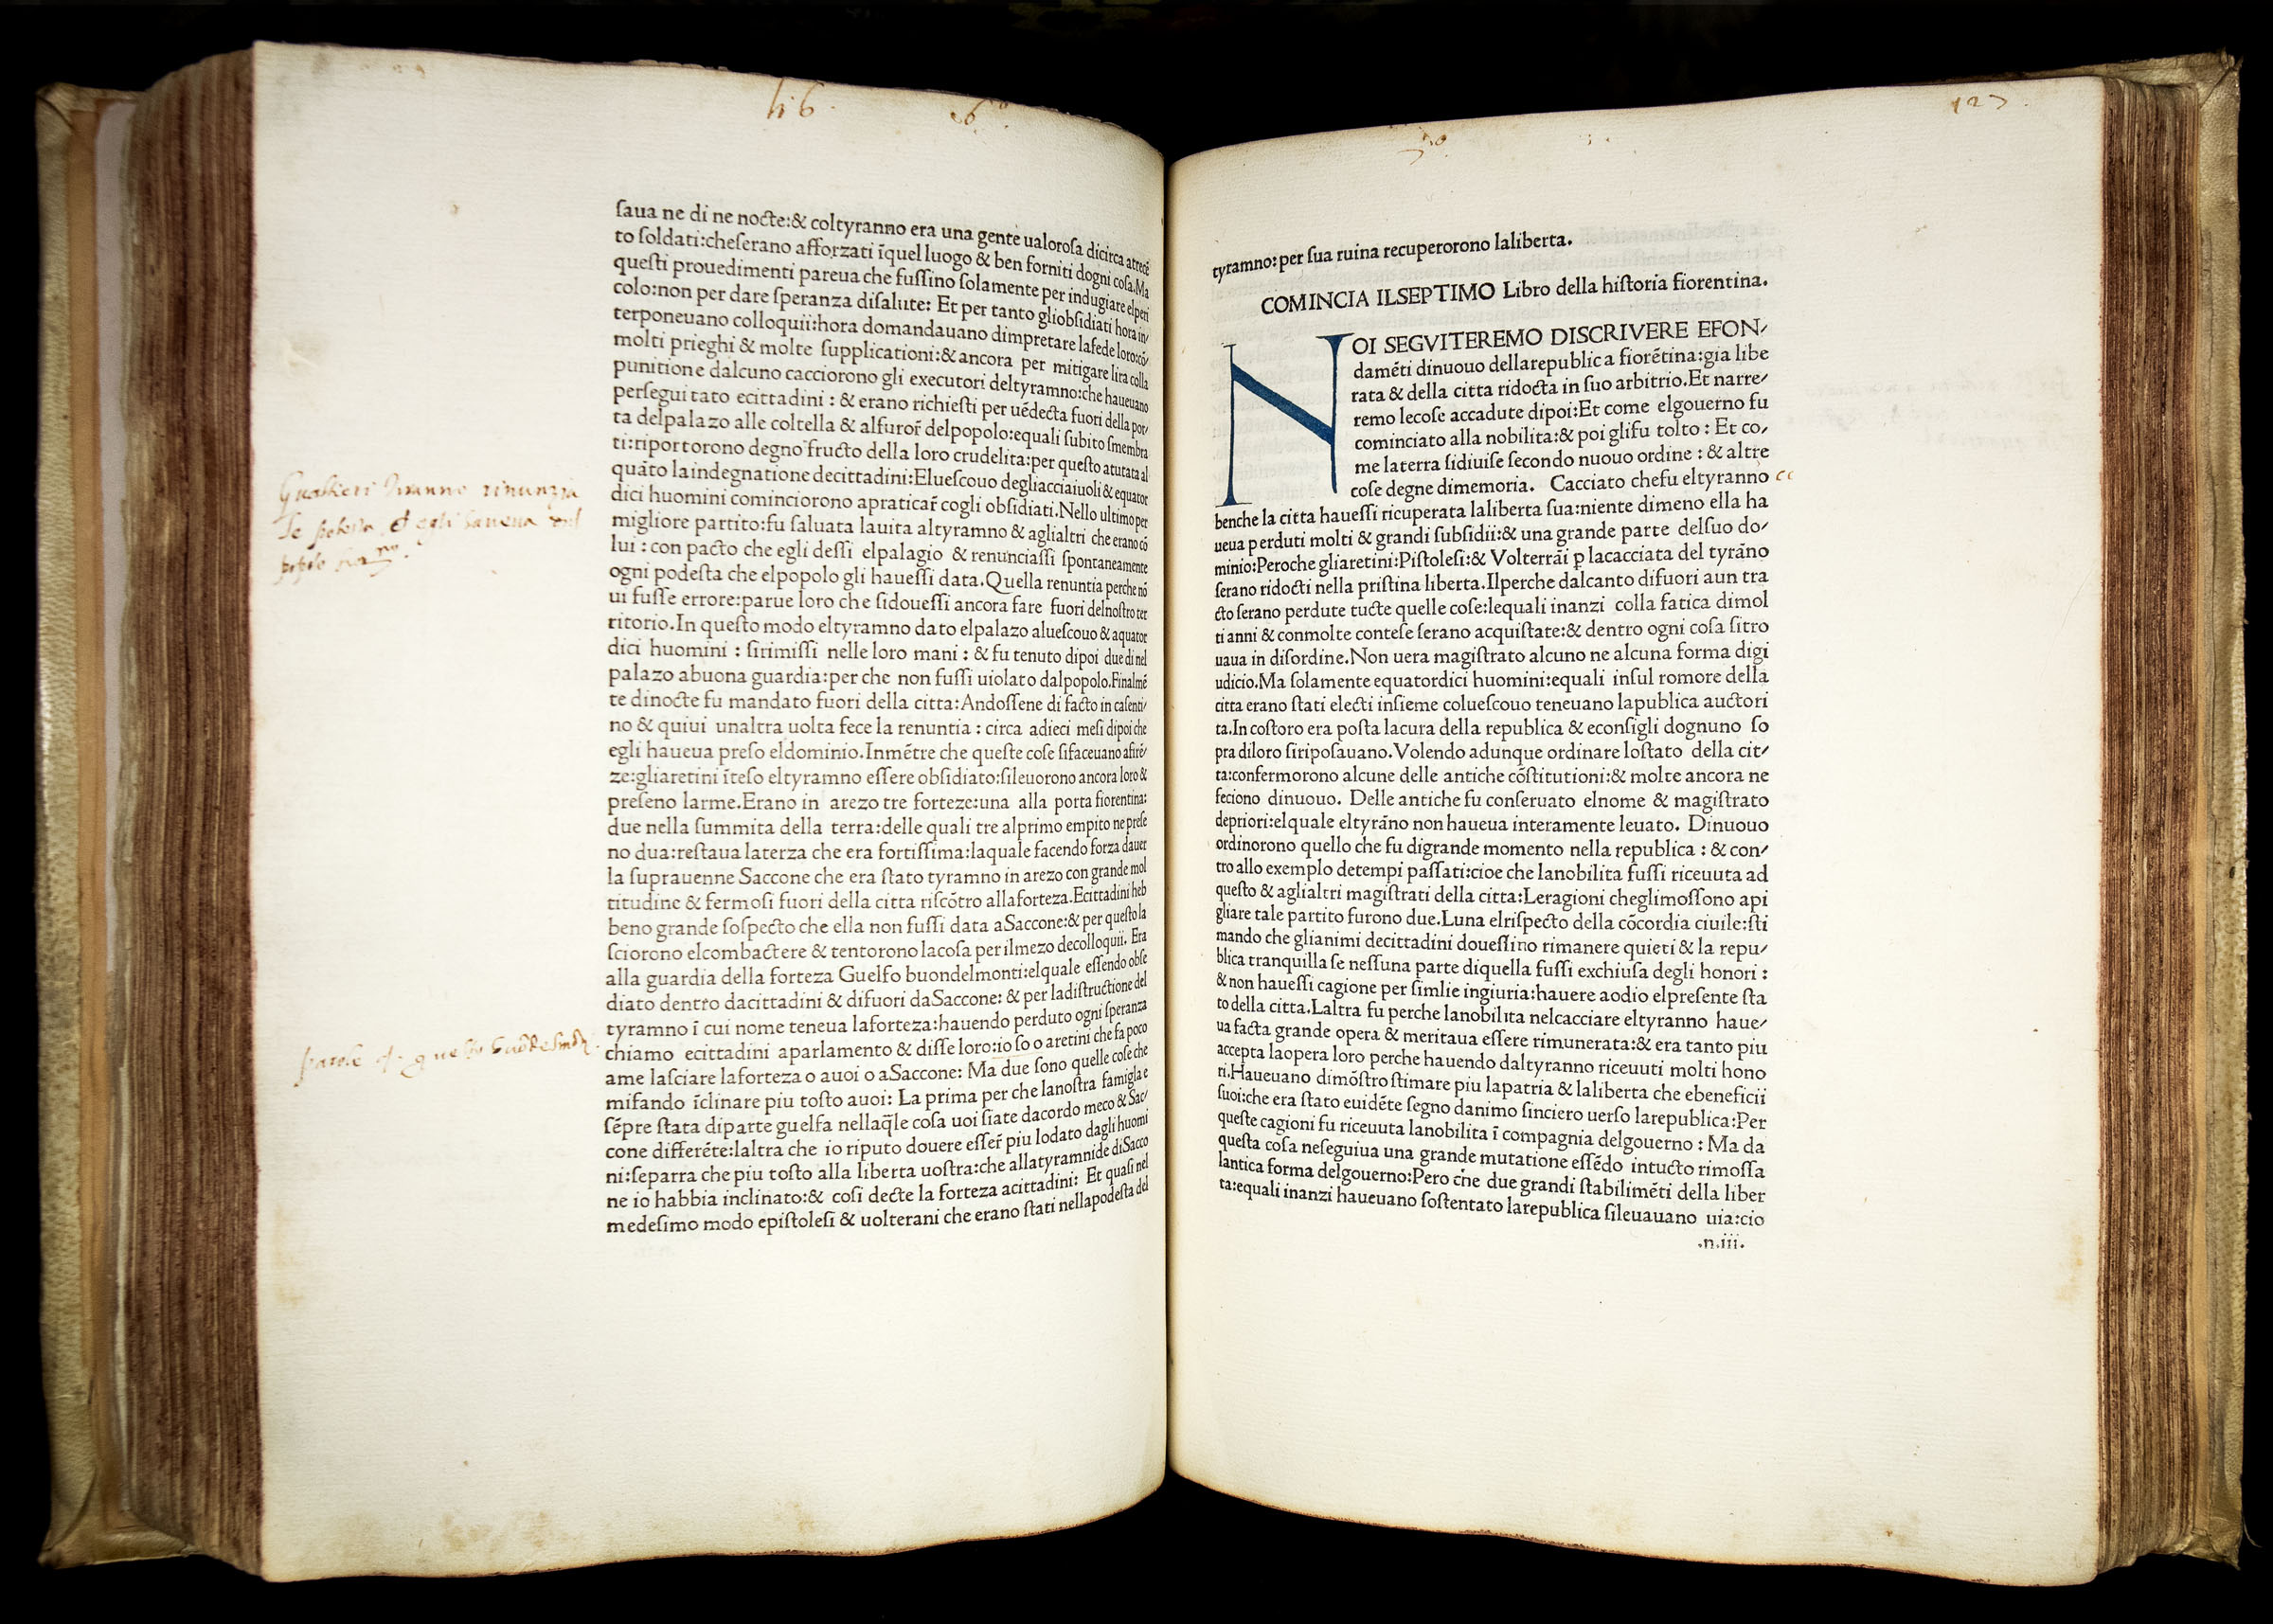 lib. 6º.
ſaua ne di ne nocte:& coltyranno era una gente ualoroſa dicirca atrecē
to ſoldati:cheſerano afforzati īquel luogo & ben forniti dogni coſa.Ma
queſti prouedimenti pareua che fuſſino ſolamente per indugiare elperi
colo:non per dare ſperanza diſalute: Et per tanto gliobſidiati hora in/
terponeuano colloquii:hora domandauano dimpretare lafede loro:cō/
molti prieghi & molte ſupplicationi:& ancora per mitigare lira colla
punitione dalcuno cacciorono gli executori deltyramno:che haueuano
perſeguitato ecittadini : & erano richieſti per uēdecta fuori della por/
ta delpalazo alle coltella & alfuror̄ delpopolo:equali ſubito ſmembra
ti:riportorono degno fructo della loro crudelita:per queſto atutata al
quāto laindegnatione decittadini:Elueſcouo degliacciaiuoli & equator
dici huomini cominciorono apraticar̄ cogli obſidiati.Nello ultimo per
migliore partito:fu ſaluata lauita altyramno & aglialtri che erano cō
lui : con pacto che egli deſſi elpalagio & renunciaſſi ſpontaneamente
ogni podeſta che elpopolo gli haueſſi data.Quella renuntia perche nō
ui fuſſe errore:parue loro che ſidoueſſi ancora fare fuori delnoſtro ter
ritorio.In queſto modo eltyramno dato elpalazo alueſcouo & aquator
dici huomini : ſirimiſſi nelle loro mani : & fu tenuto dipoi due di nel
palazo abuona guardia:per che non fuſſi uiolato dalpopolo.Finalmē
te dinocte fu mandato fuori della citta:Andoſſene di facto in caſenti/
no & quiui unaltra uolta fece la renuntia : circa adieci meſi dipoi che
egli haueua preſo eldominio.Inmētre che queſte coſe ſifaceuano afirē/
ze:gliaretini īteſo eltyramno eſſere obſidiato:ſileuorono ancora loro &
preſeno larme.Erano in arezo tre forteze:una alla porta fiorentina:
due nella ſummita della terra:delle quali tre alprimo empito ne preſe
no dua:reſtaua laterza che era fortiſſima:laquale facendo forza dauer
la ſuprauenne Saccone che era ſtato tyramno in arezo con grande mol
titudine & fermoſi fuori della citta riſcōtro allaforteza.Ecittadini heb
beno grande ſoſpecto che ella non fuſſi data aSaccone:& per queſto la
ſciorono elcombactere & tentorono lacoſa per ilmezo decolloquii. Era
alla guardia della forteza Guelfo buondelmonti:elquale eſſendo obſe
diato dentro dacittadini & difuori daSaccone: & per ladiſtructione del
tyramno ī cui nome teneua laforteza:hauendo perduto ogni ſperanza
chiamo ecittadini aparlamento & diſſe loro:io ſo o aretini che fa poco
ame laſciare laforteza o auoi o aSaccone: Ma due ſono quelle coſe che
mifando īclinare piu toſto auoi: La prima per che lanoſtra famigla e
ſēpre ſtata diparte guelfa nellaq̄le coſa uoi ſiate dacordo meco & Sac/
cone differēte:laltra che io riputo douere eſſer̄ piu lodato dagli huomi
ni:ſeparra che piu toſto alla liberta uoſtra:che allatyramnide diSacco
ne io habbia inclinato:& coſi decte la forteza acittadini: Et quaſi nel
medeſimo modo epiſtoleſi & uolterani che erano ſtati nellapodeſta del
Gualtieri tiranno rinunzia
popolo
parole
127
tyramno:per ſua ruina recuperorono laliberta.
COMINCIA ILSEPTIMO Libro della hiſtoria fiorentina.
NOI SEGVITEREMO DISCRIVERE EFON/
damēti dinuouo dellarepublica fiorētina:gia libe
rata & della citta ridocta in ſuo arbitrio.Et narre/
remo lecoſe accadute dipoi:Et come elgouerno fu
cominciato alla nobilita:& poi glifu tolto : Et co/
me laterra ſidiuiſe ſecondo nuouo ordine : & altre
coſe degne dimemoria. Cacciato chefu eltyranno
benche la citta haueſſi ricuperata laliberta ſua:niente dimeno ella ha
ueua perduti molti & grandi ſubſidii:& una grande parte delſuo do/
minio:Peroche gliaretini:Piſtoleſi:& Volterrāi ꝑ lacacciata del tyrāno
ſerano ridocti nella priſtina liberta.Ilperche dalcanto difuori aun tra
cto ſerano perdute tucte quelle coſe:lequali inanzi colla fatica dimol
ti anni & conmolte conteſe ſerano acquiſtate:& dentro ogni coſa ſitro
uaua in diſordine.Non uera magiſtrato alcuno ne alcuna forma digi
udicio.Ma ſolamente equatordici huomini:equali inſul romore della
citta erano ſtati electi inſieme colueſcouo teneuano lapublica auctori
ta.In coſtoro era poſta lacura della republica & econſigli dognuno ſo
pra diloro ſiripoſauano.Volendo adunque ordinare loſtato della cit/
ta:confermorono alcune delle antiche cōſtitutioni:& molte ancora ne
feciono dinuouo. Delle antiche fu conſeruato elnome & magiſtrato
depriori:elquale eltyrāno non haueua interamente leuato. Dinuouo
ordinorono quello che fu digrande momento nella republica : & con/
tro allo exemplo detempi paſſati:cioe che lanobilita fuſſi riceuuta ad
queſto & aglialtri magiſtrati della citta:Leragioni cheglimoſſono api
gliare tale partito furono due.Luna elriſpecto della cōcordia ciuile:ſti
mando che glianimi decittadini doueſſino rimanere quieti & la repu/
blica tranquilla ſe neſſuna parte diquella fuſſi exchiuſa degli honori :
& non haueſſi cagione per ſimlie ingiuria:hauere aodio elpreſente ſta
to della citta.Laltra fu perche lanobilita nelcacciare eltyranno haue/
ua facta grande opera & meritaua eſſere rimunerata:& era tanto piu
accepta laopera loro perche hauendo daltyranno riceuuti molti hono
ri.Haueuano dimōſtro ſtimare piu lapatria & laliberta che ebeneficii
ſuoi:che era ſtato euidēte ſegno danimo ſinciero uerſo larepublica:Per
queſte cagioni fu riceuuta lanobilita ī compagnia delgouerno : Ma da
queſta coſa neſeguiua una grande mutatione eſſēdo intucto rimoſſa
lantica forma delgouerno:Pero che due grandi ſtabilimēti della liber
ta:equali inanzi haueuano ſoſtentato larepublica ſileuauano uia:cio
.n.iii.